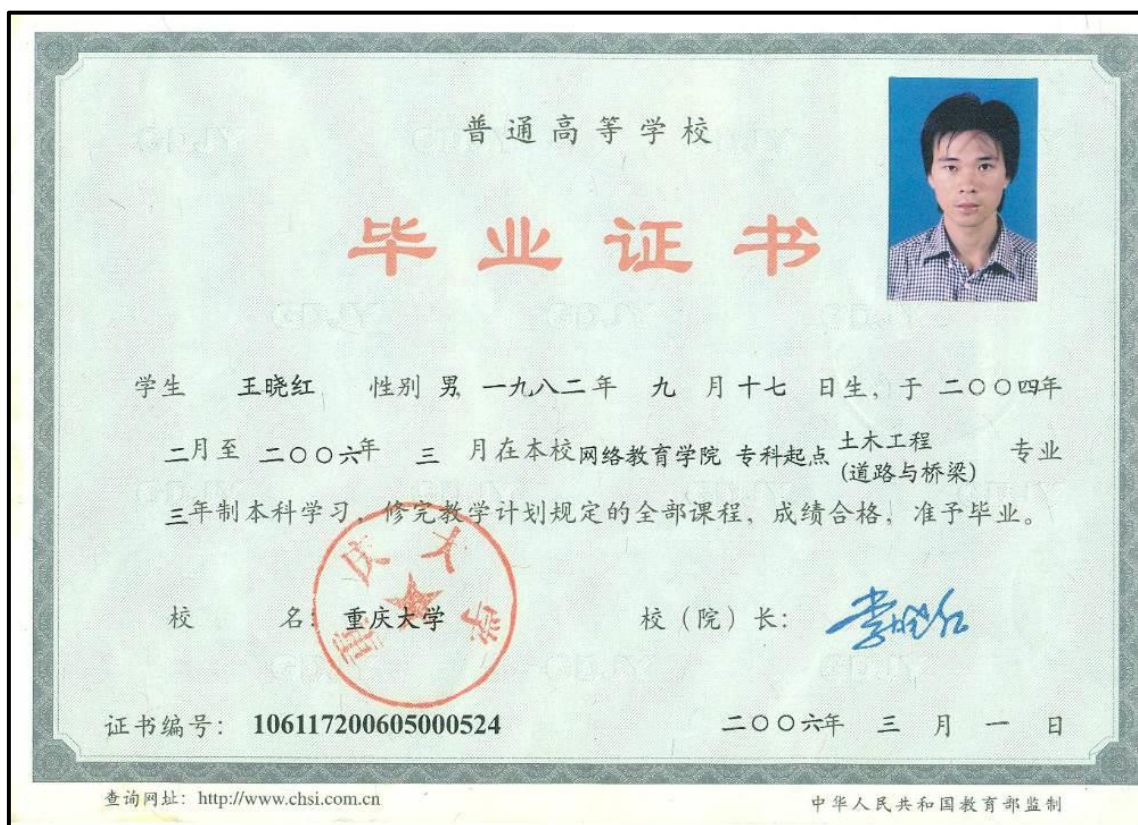 普通高等学校
毕业证书
学生 王晓红 性别 男 一九八二年 九 月十七 日生，于 二〇〇四年
二月至 二〇〇六年 三 月在本校网络教育学院 专科起点 土木工程 (道路与桥梁) 专业
三年制本科学习，修完教学计划规定的全部课程，成绩合格，准予毕业。
校 名：重庆大学 校（院）长：
重庆大学
证书编号：106117200605000524 二〇〇六年 三 月 一 日
查询网址：http://www.chsi.com.cn 中华人民共和国教育部监制